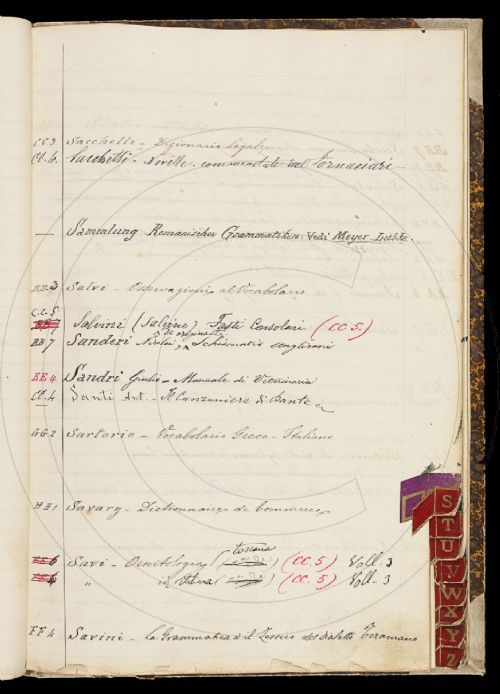 CC 3 Sacchetti - Dizionario legale
Cd. 4 Sacchetti - Novelle, commentate dal Fornaciari
— Sammlung Romanischer Grammatiken: Vedi Meyer-Lübke.
3 Salvi - Osservazioni al Vocabolario
C.C. 5
Salvini (Salvino) Fasti Consolari (CC 5.)
de origine
BB 7 Sanderi Nicolai Schismatis anglicani
EE 4 Sandri Giulio - Manuale di Veterinaria
Cd. 4 Santi Ant. - Il Canzoniere di Dante
GG 2 Sartorio - Vocabolario Greco-Italiano
HH 1 Savary - Dictionnaire de Commerce
toscana
6 Savi - Ornitologia (CC. 5) Voll. 3
6 " id (CC. 5) Voll. 3
EE 4 Savini - La Grammatica e il Lessico del dialetto Teramano
S
T
U
V
W
X
Y
Z